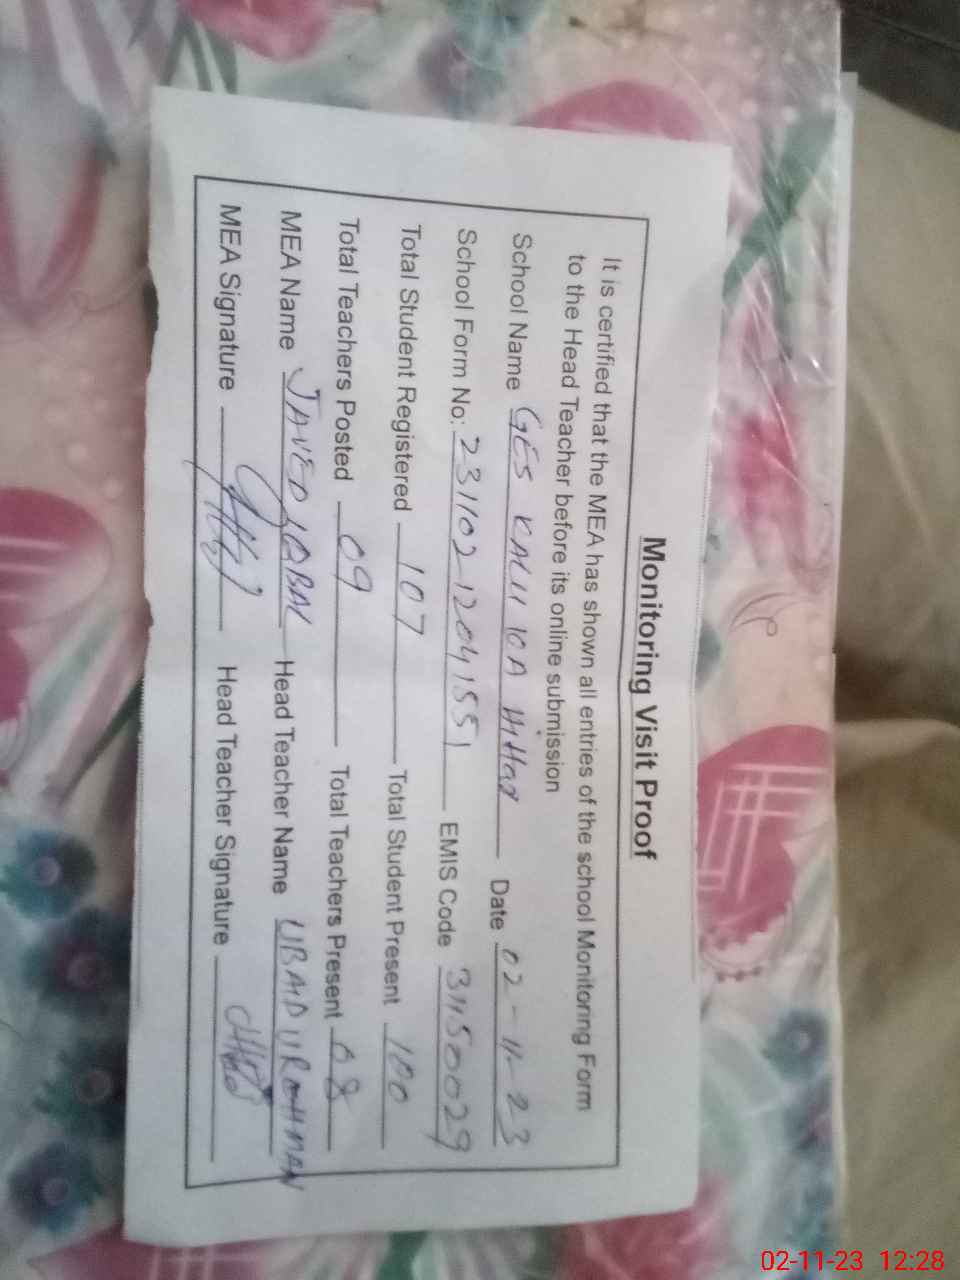 Monitoring Visit Proof
It is certified that the MEA has shown all entries of the school Monitoring Form
to the Head Teacher before its online submission
School Name GES KALU 10 A Hithad Date 02-11-23
School Form No: 231102-1204155 EMIS Code 31150029
Total Student Registered 107 Total Student Present 100
Total Teachers Posted 09 Total Teachers Present 08
MEA Name JAVED IQBAL Head Teacher Name UBAID UR REHMAN
MEA Signature Head Teacher Signature
02-11-23 12:28